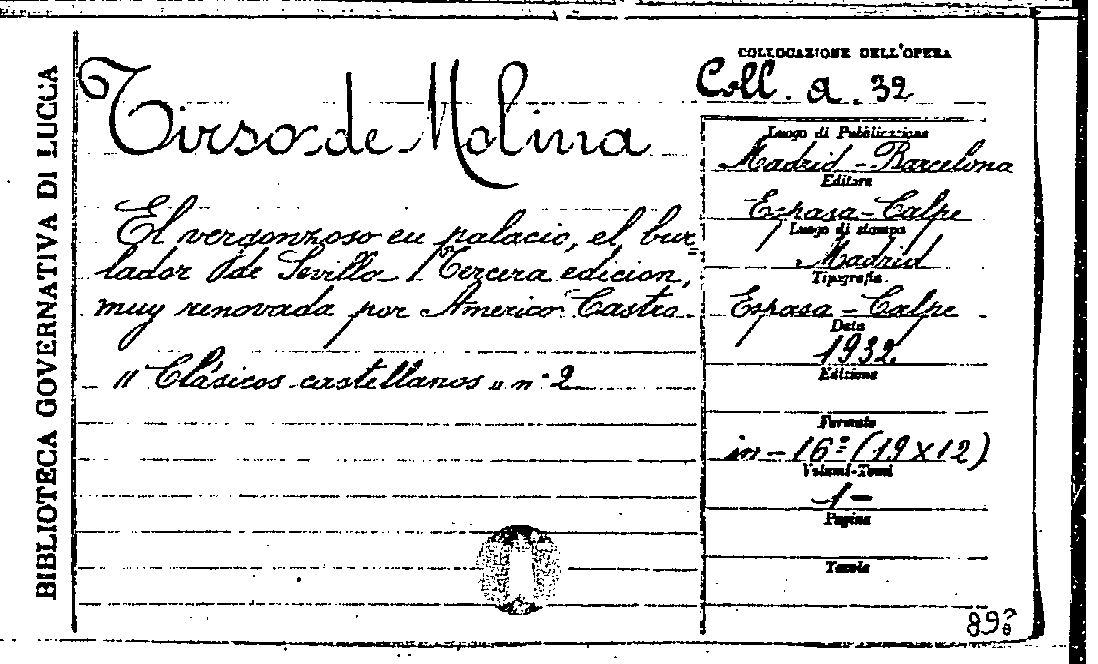 BIBLIOTECA GOVERNATIVA DI LUCCA
Tirso de Molina
El vergonzoso en palacio, el bur=
lador de Sevilla. Tercera edicion,
muy renovada por Americo Castro.
"Clásicos castellanos" n. 2
COLLOCAZIONE DELL'OPERA
Coll. a. 32
Luogo di Pubblicazione
Madrid - Barcelona
Editore
Espasa-Calpe
Luogo di stampa
Madrid
Tipografia
Espasa-Calpe.
Data
1932.
Edizione
Formato
in-16º (19x12)
Volumi-Tomi
1-
Pagine
Tavole